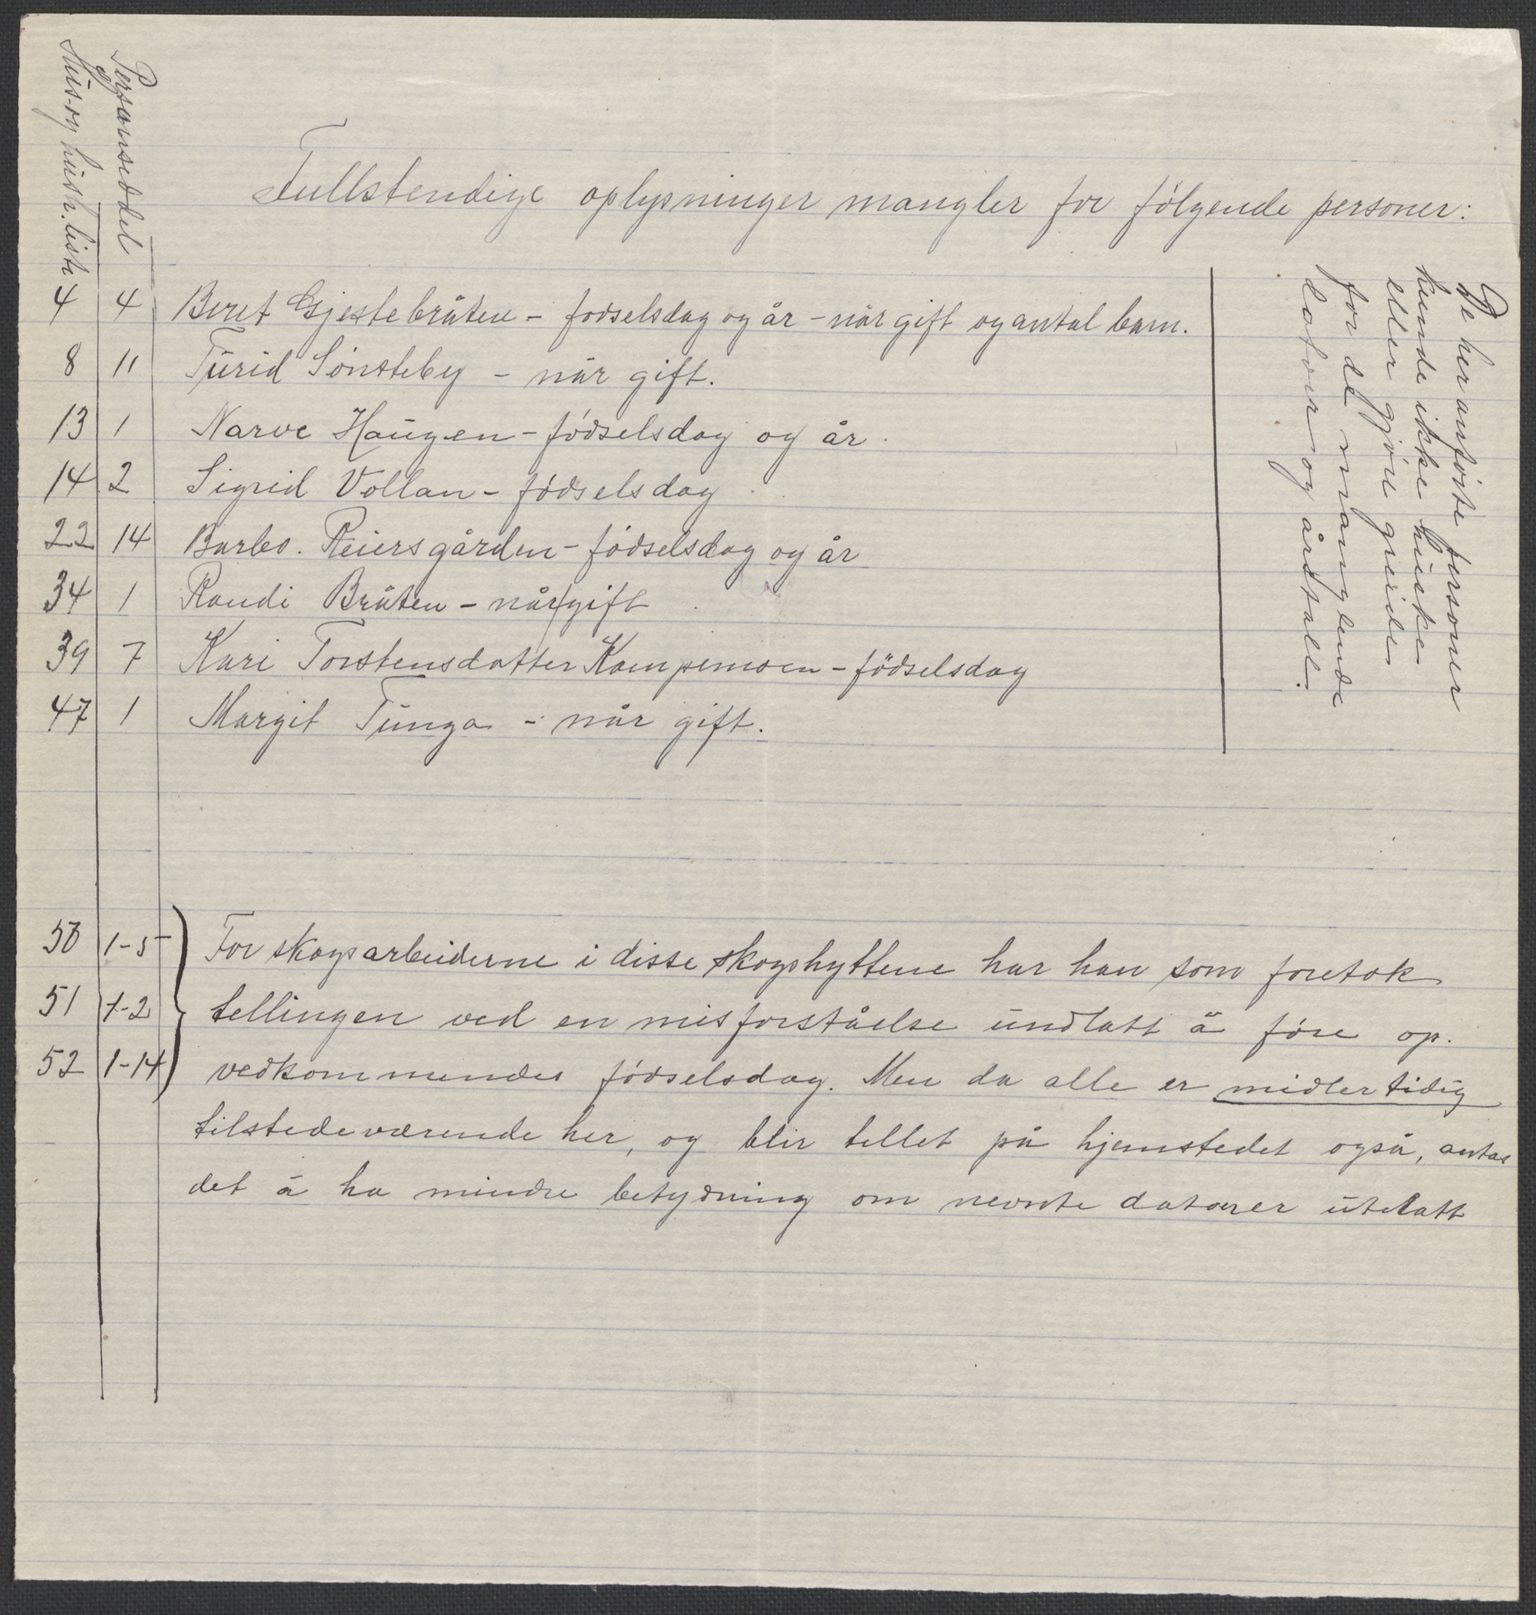 Hus- og hush. liste
Personseddel
Fullstendige oplysninger mangler for følgende personer:
4 4 Beret Gjestebråten - fødselsdag og år - når gift og antal barn.
8 11 Turid Sönsteby - når gift.
13 1 Narve Haugen - födselsdag og år.
14 2 Sigrid Vollan - fødselsdag
22 14 Barbo. Reiersgården - födselsdag og år
34 1 Randi Bråten - når gift
39 7 Kari Torstensdatter Kampemoen - födselsdag
47 1 Margit Tunga - når gift.
De her anförte personer
kunde ikke huske
eller gjöre greide
for de manglende
datoer og årstall.
50 1-5 For skogsarbeiderne i disse skogshyttene har han som foretok
51 1-2 tellingen ved en misforståelse undlatt å före op.
52 1-14 vedkommendes födselsdag. Men da alle er midlertidig
tilstedeværende her, og blir tellet på hjemstedet også, antas
det å ha mindre betydning om nevnte datoer er utelatt